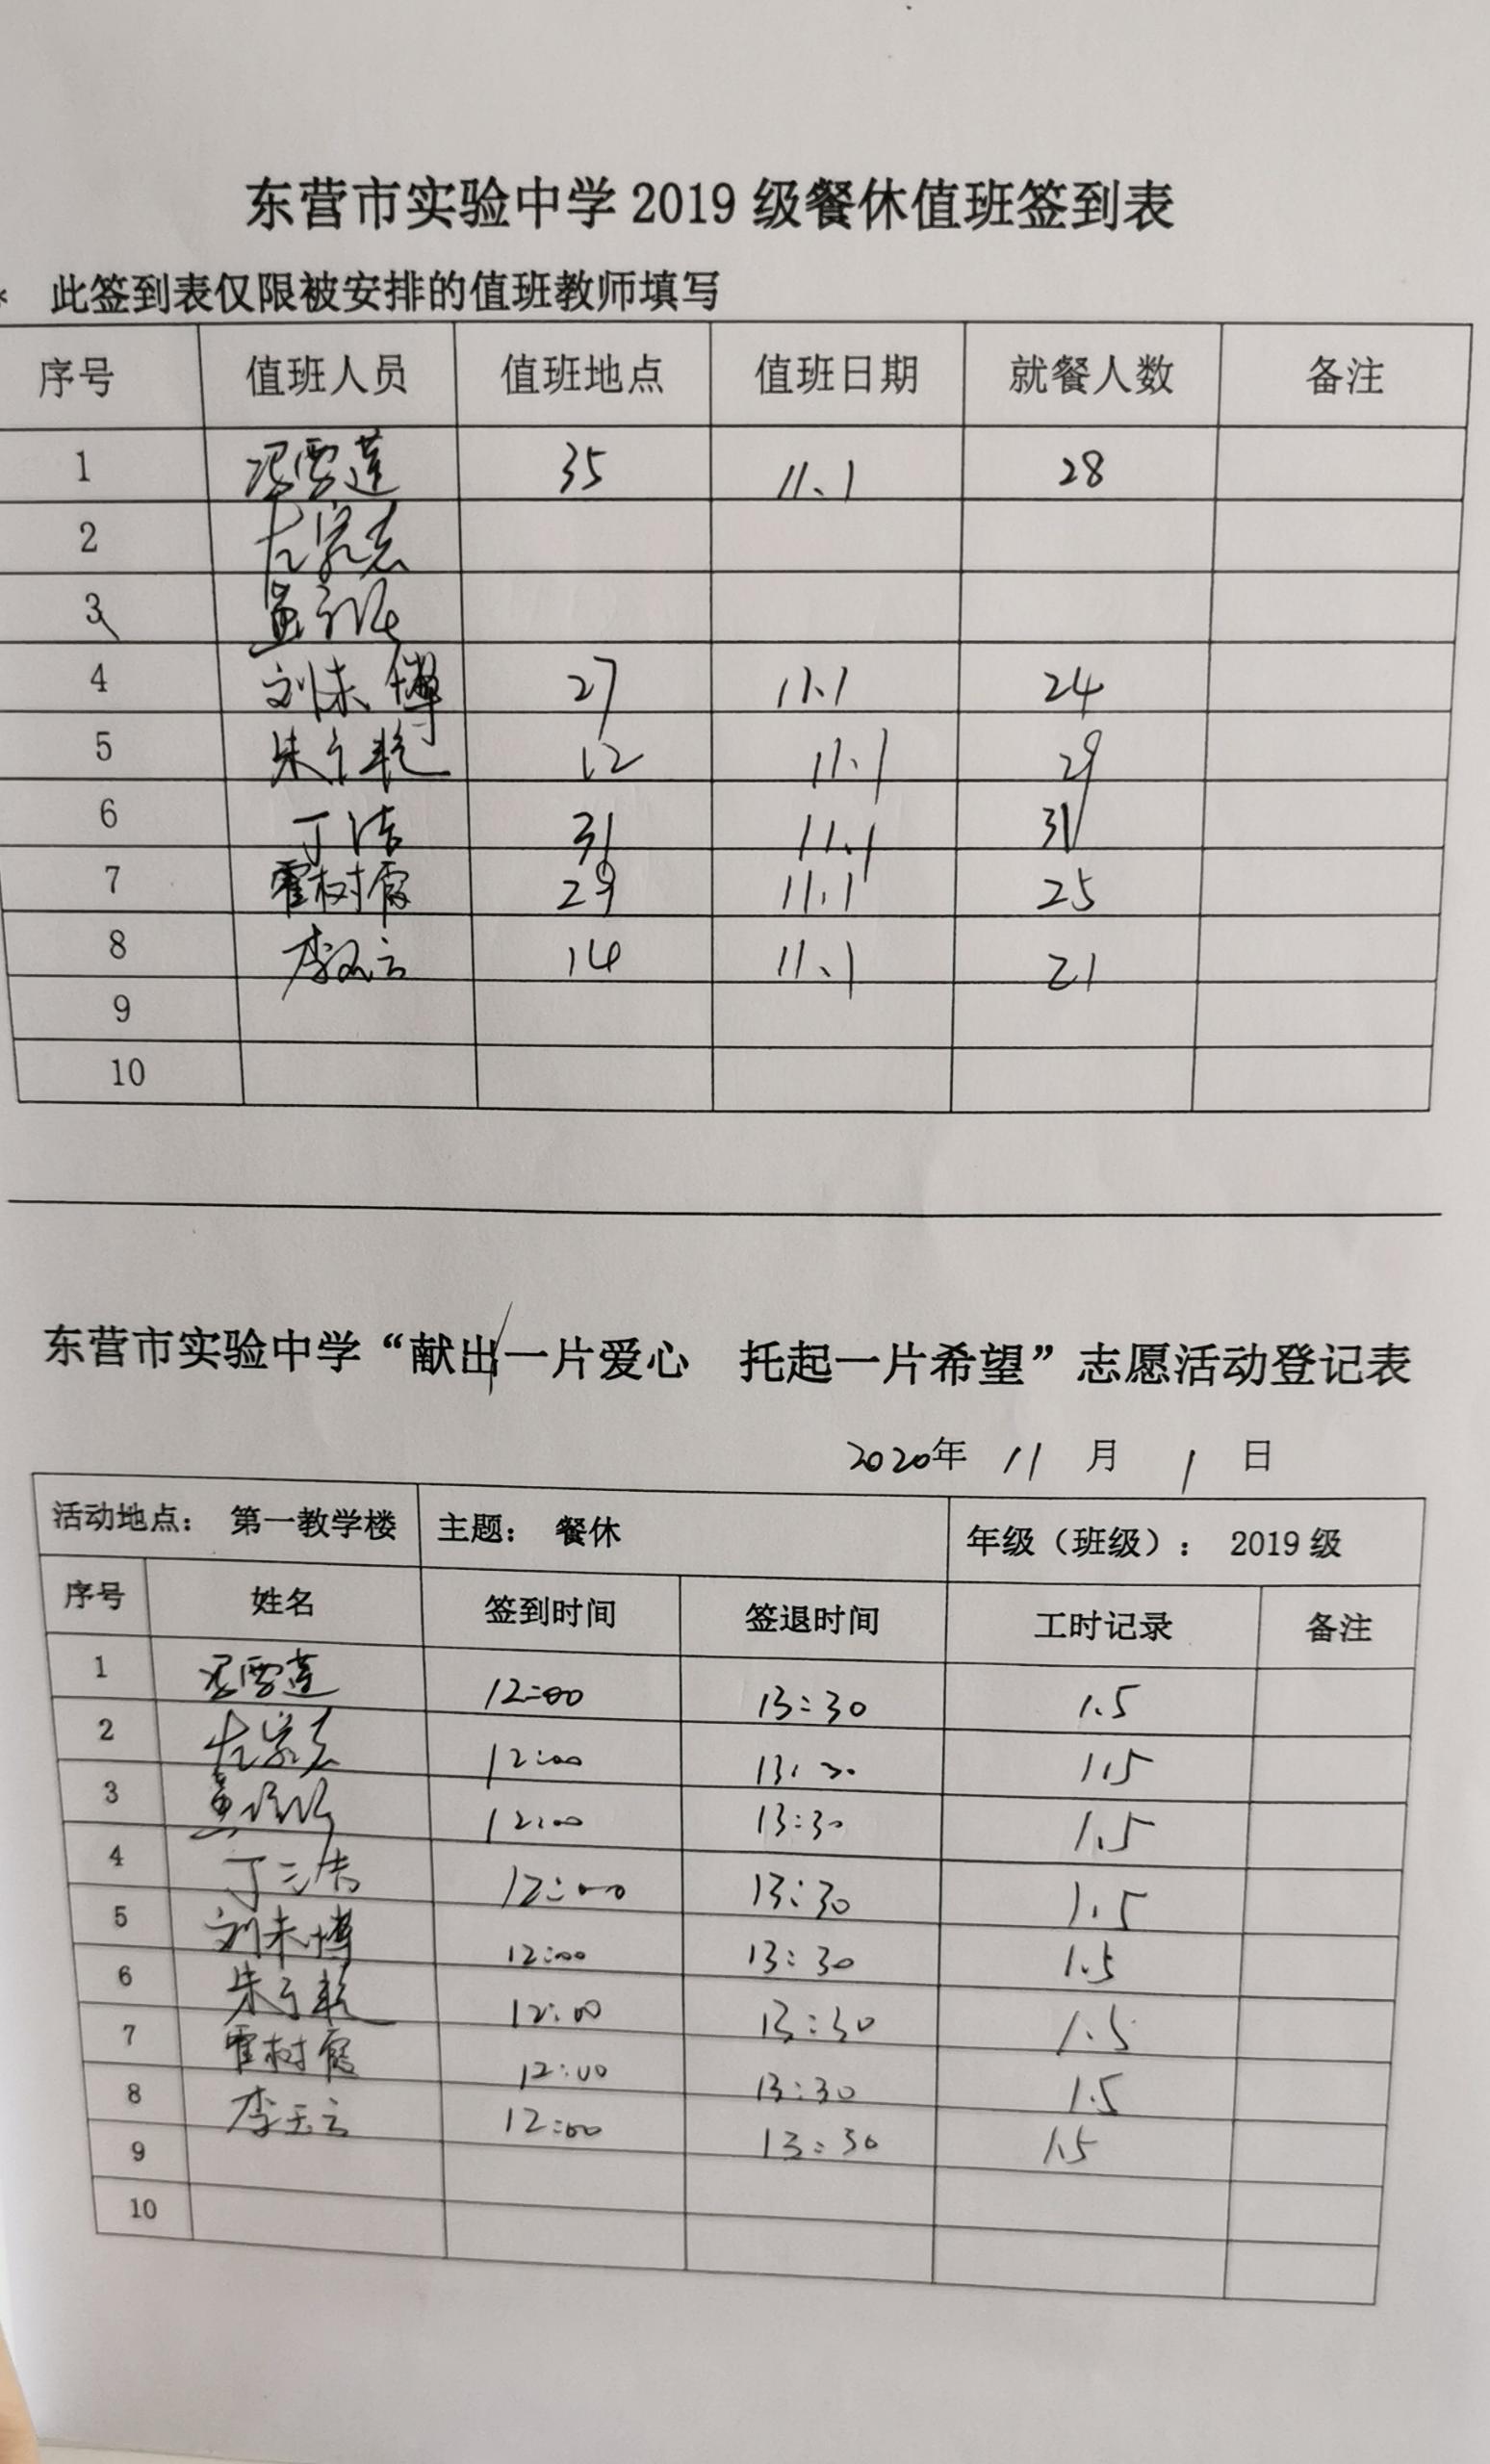 东营市实验中学 2019 级餐休值班签到表
* 此签到表仅限被安排的值班教师填写
序号 值班人员 值班地点 值班日期 就餐人数 备注
1 雪莲 35 11、1 28
2
3
4 刘未博 27 11、1 24
5 朱 12 11、1 29
6 丁洁 31 11、1 31
7 霍树霞 29 11、1 25
8 李 14 11、1 21
9
10
东营市实验中学“献出一片爱心 托起一片希望”志愿活动登记表
2020年 11 月 1 日
活动地点： 第一教学楼 主题： 餐休 年级（班级）： 2019 级
序号 姓名 签到时间 签退时间 工时记录 备注
1 雪莲 12:00 13:30 1.5
2 12:00 13:30 1.5
3 12:00 13:30 1.5
4 丁洁 12:00 13:30 1.5
5 刘未博 12:00 13:30 1.5
6 朱 12:00 13:30 1.5
7 霍树霞 12:00 13:30 1.5
8 李 12:00 13:30 1.5
9
10